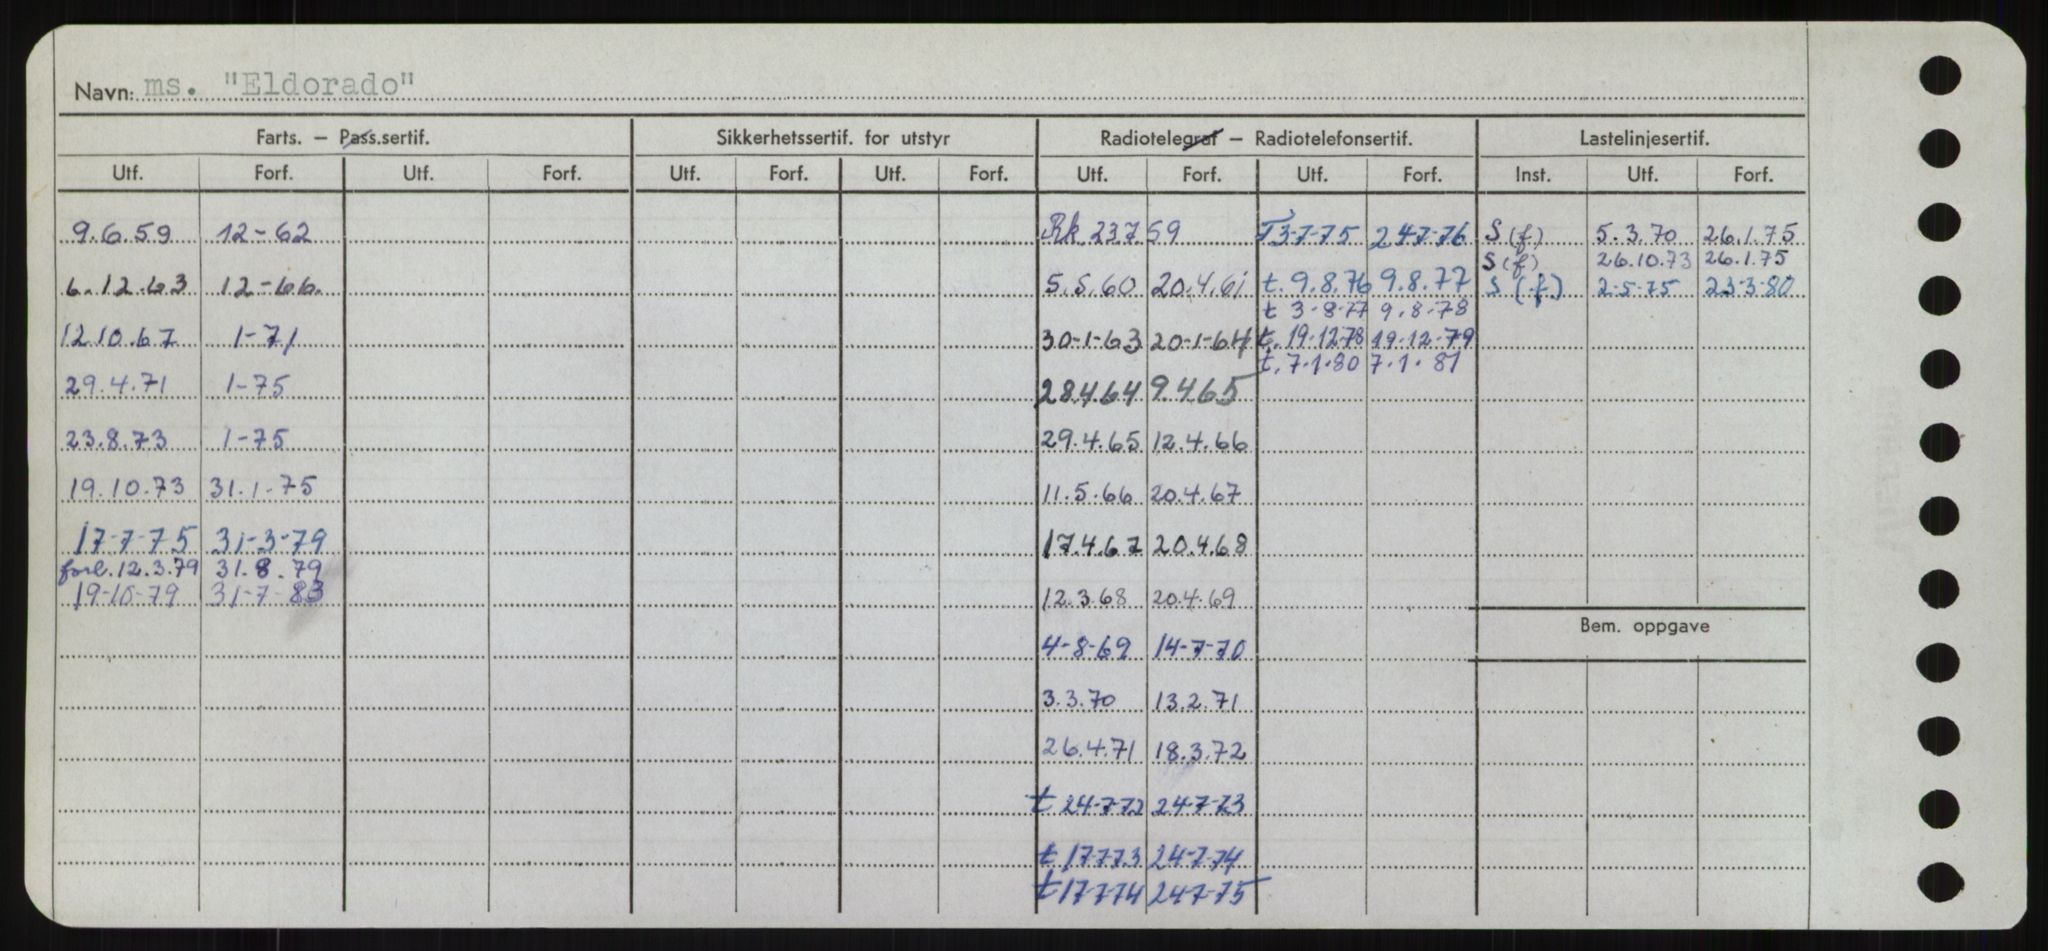 Navn: ms. "Eldorado"
Farts. — Pass.sertif. Sikkerhetssertif. for utstyr Radiotelegraf — Radiotelefonsertif. Lastelinjesertif.
Utf. Forf. Utf. Forf. Utf. Forf. Utf. Forf. Utf. Forf. Utf. Forf. Inst. Utf. Forf.
9.6.59 12-62 Rk 23759 T3-7-75 24-7-76 S (f) 5.3.70 26.1.75
S (f) 26.10.73 26.1.75
6.12.63 12-66. 5.5.60 20.4.61 t. 9.8.76 9.8.77 S (f) 2-5-75 23-3-80
t 3-8-77 9.8-78
12.10.67 1-71 30-1-63 20-1-64 t. 19-12-78 19.12.79
t. 7.1.80 7.1.81
29.4.71 1-75 28.4.64 9.4.65
23.8.73 1-75 29.4.65 12.4.66
19.10.73 31.1-75 11.5.66 20.4.67
17-7-75 31-3-79 17.4.67 20.4.68
forl. 12.3.79 31.8.79
19-10-79 31-7-83 12.3.68 20.4.69
Bem. oppgave
4-8-69 14-7-70
3.3.70 13.2.71
26.4.71 18.3.72
t 24-7-72 24-7-73
t 17-7-73 24-7-74
t 17-7-74 24-7-75